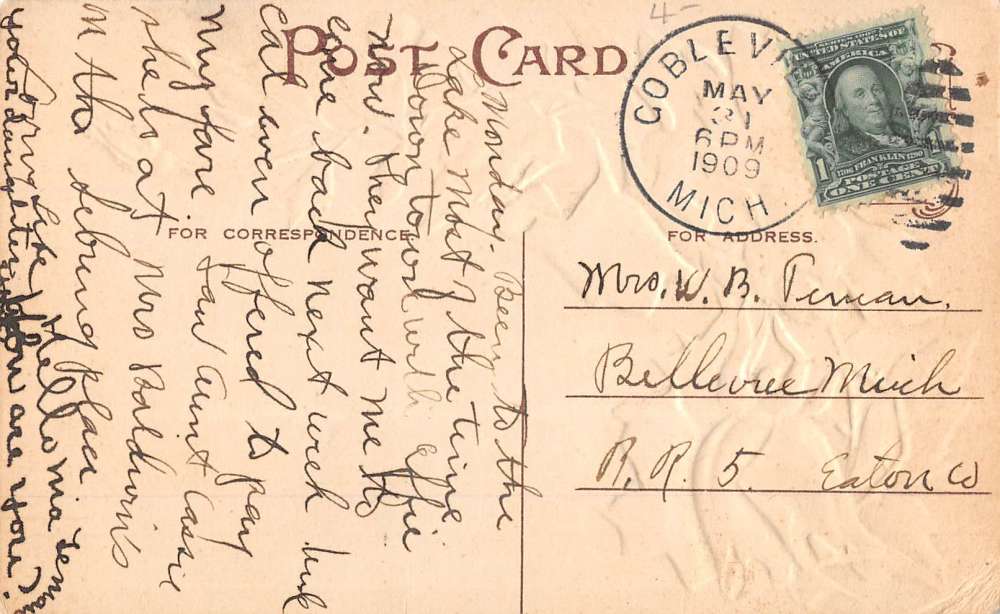 4-
POST CARD
COBLEVI
MAY
31
6 PM
1909
MICH
UNITED STATES OF
AMERICA
1706 FRANKLIN 1790
POSTAGE
1 ONE CENT
FOR CORRESPONDENCE.
FOR ADDRESS.
Monday. Been to the
Lake Most of the time
Down town with Effie
now. They want me to
come back next week but
Carl even offered to pay
my fare. Saw Aunt Cassie
she is at Mrs Baldwin's
in the Sebring place
Love
your daughter
Hello ma
how are you?
Mrs. W. B.
Bellevue Mich
R. R. 5. Eaton Co